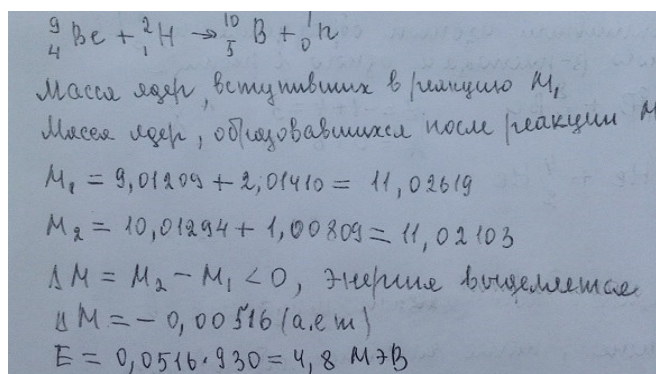 ⁹₄Be + ²₁H → ¹⁰₅B + ¹₀n
Масса ядер, вступивших в реакцию M₁
Масса ядер, образовавшихся после реакции M
M₁ = 9,01209 + 2,01410 = 11,02619
M₂ = 10,01294 + 1,00809 = 11,02103
ΔM = M₂ − M₁ < 0, энергия выделяется
ΔM = − 0,00516 (а.е.m)
E = 0,0516 · 930 = 4,8 МэВ